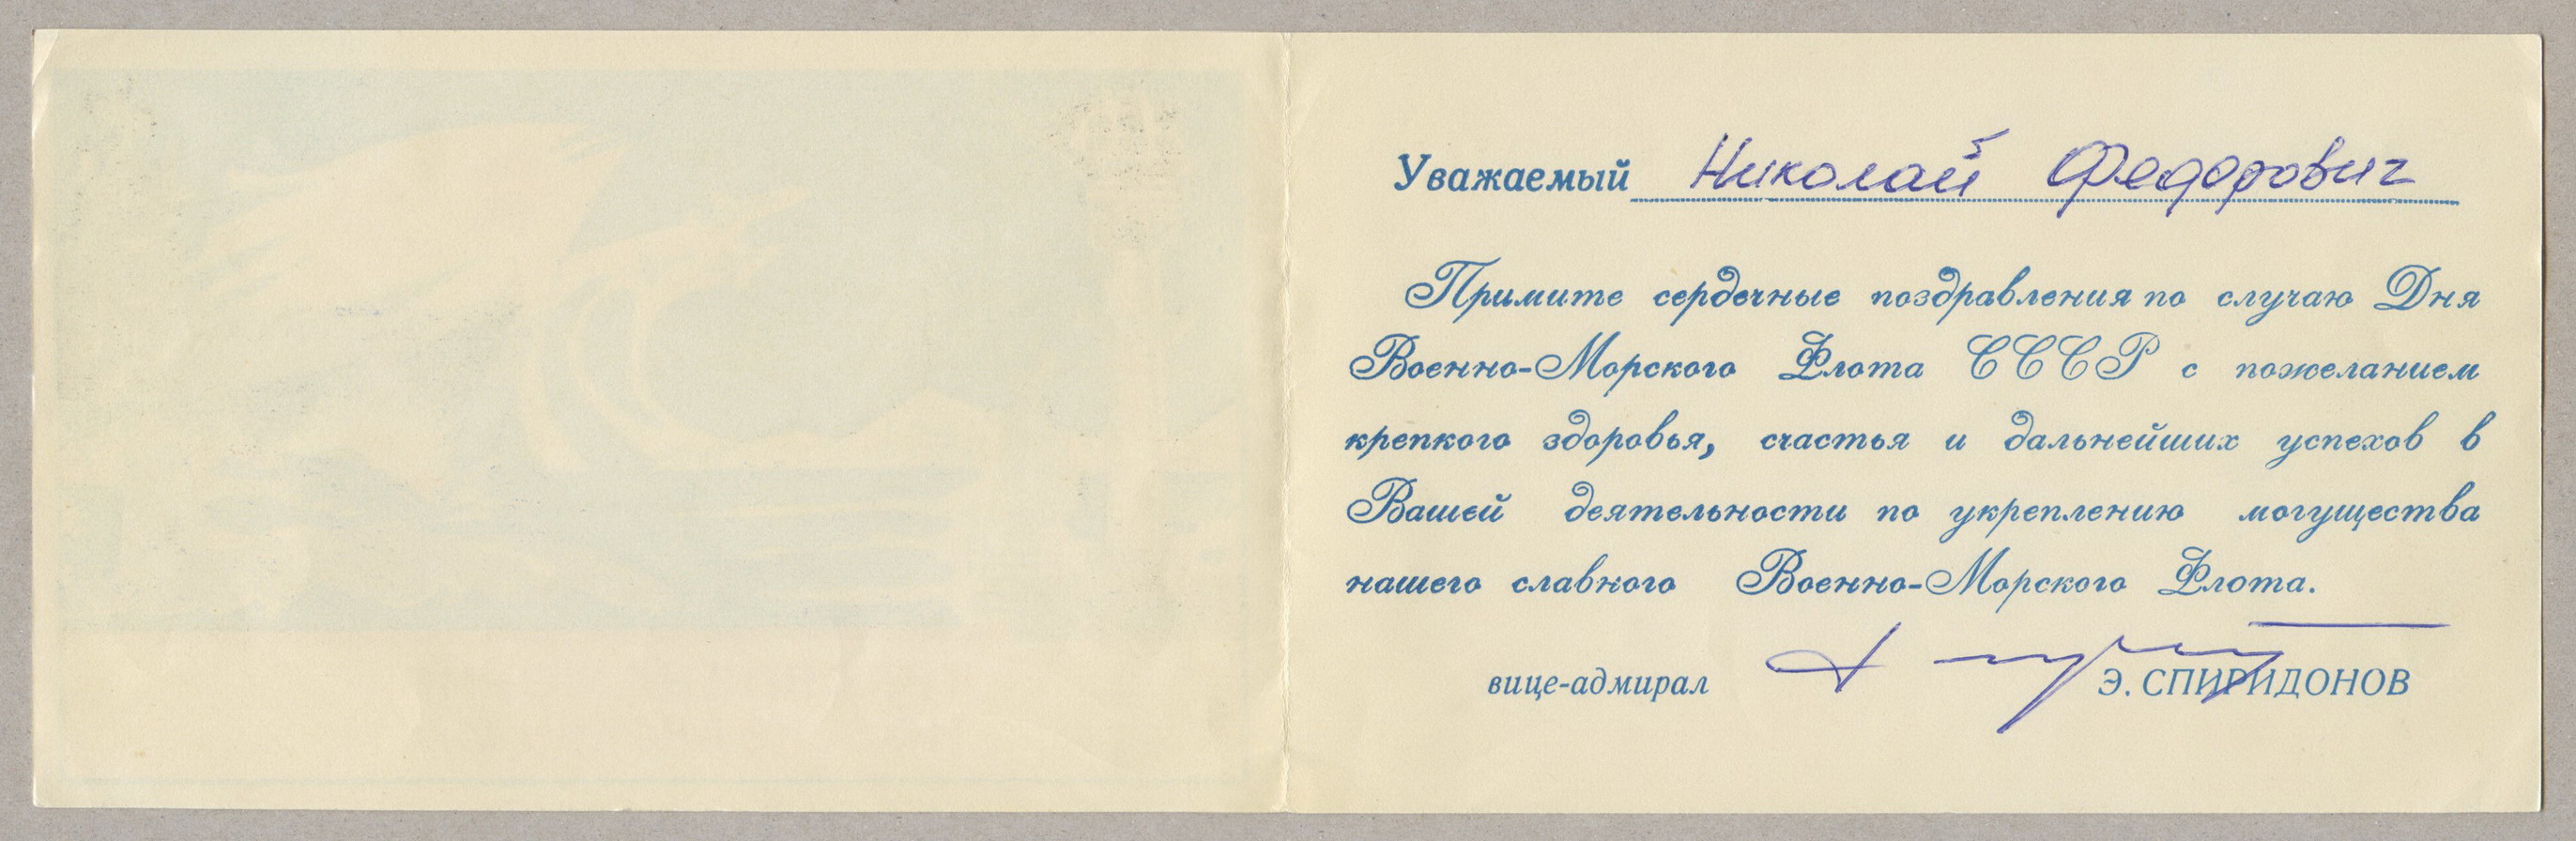 Уважаемый Николай Федорович
Примите сердечные поздравления по случаю Дня
Военно-Морского Флота СССР с пожеланием
крепкого здоровья, счастья и дальнейших успехов в
Вашей деятельности по укреплению могущества
нашего славного Военно-Морского Флота.
вице-адмирал Э. СПИРИДОНОВ